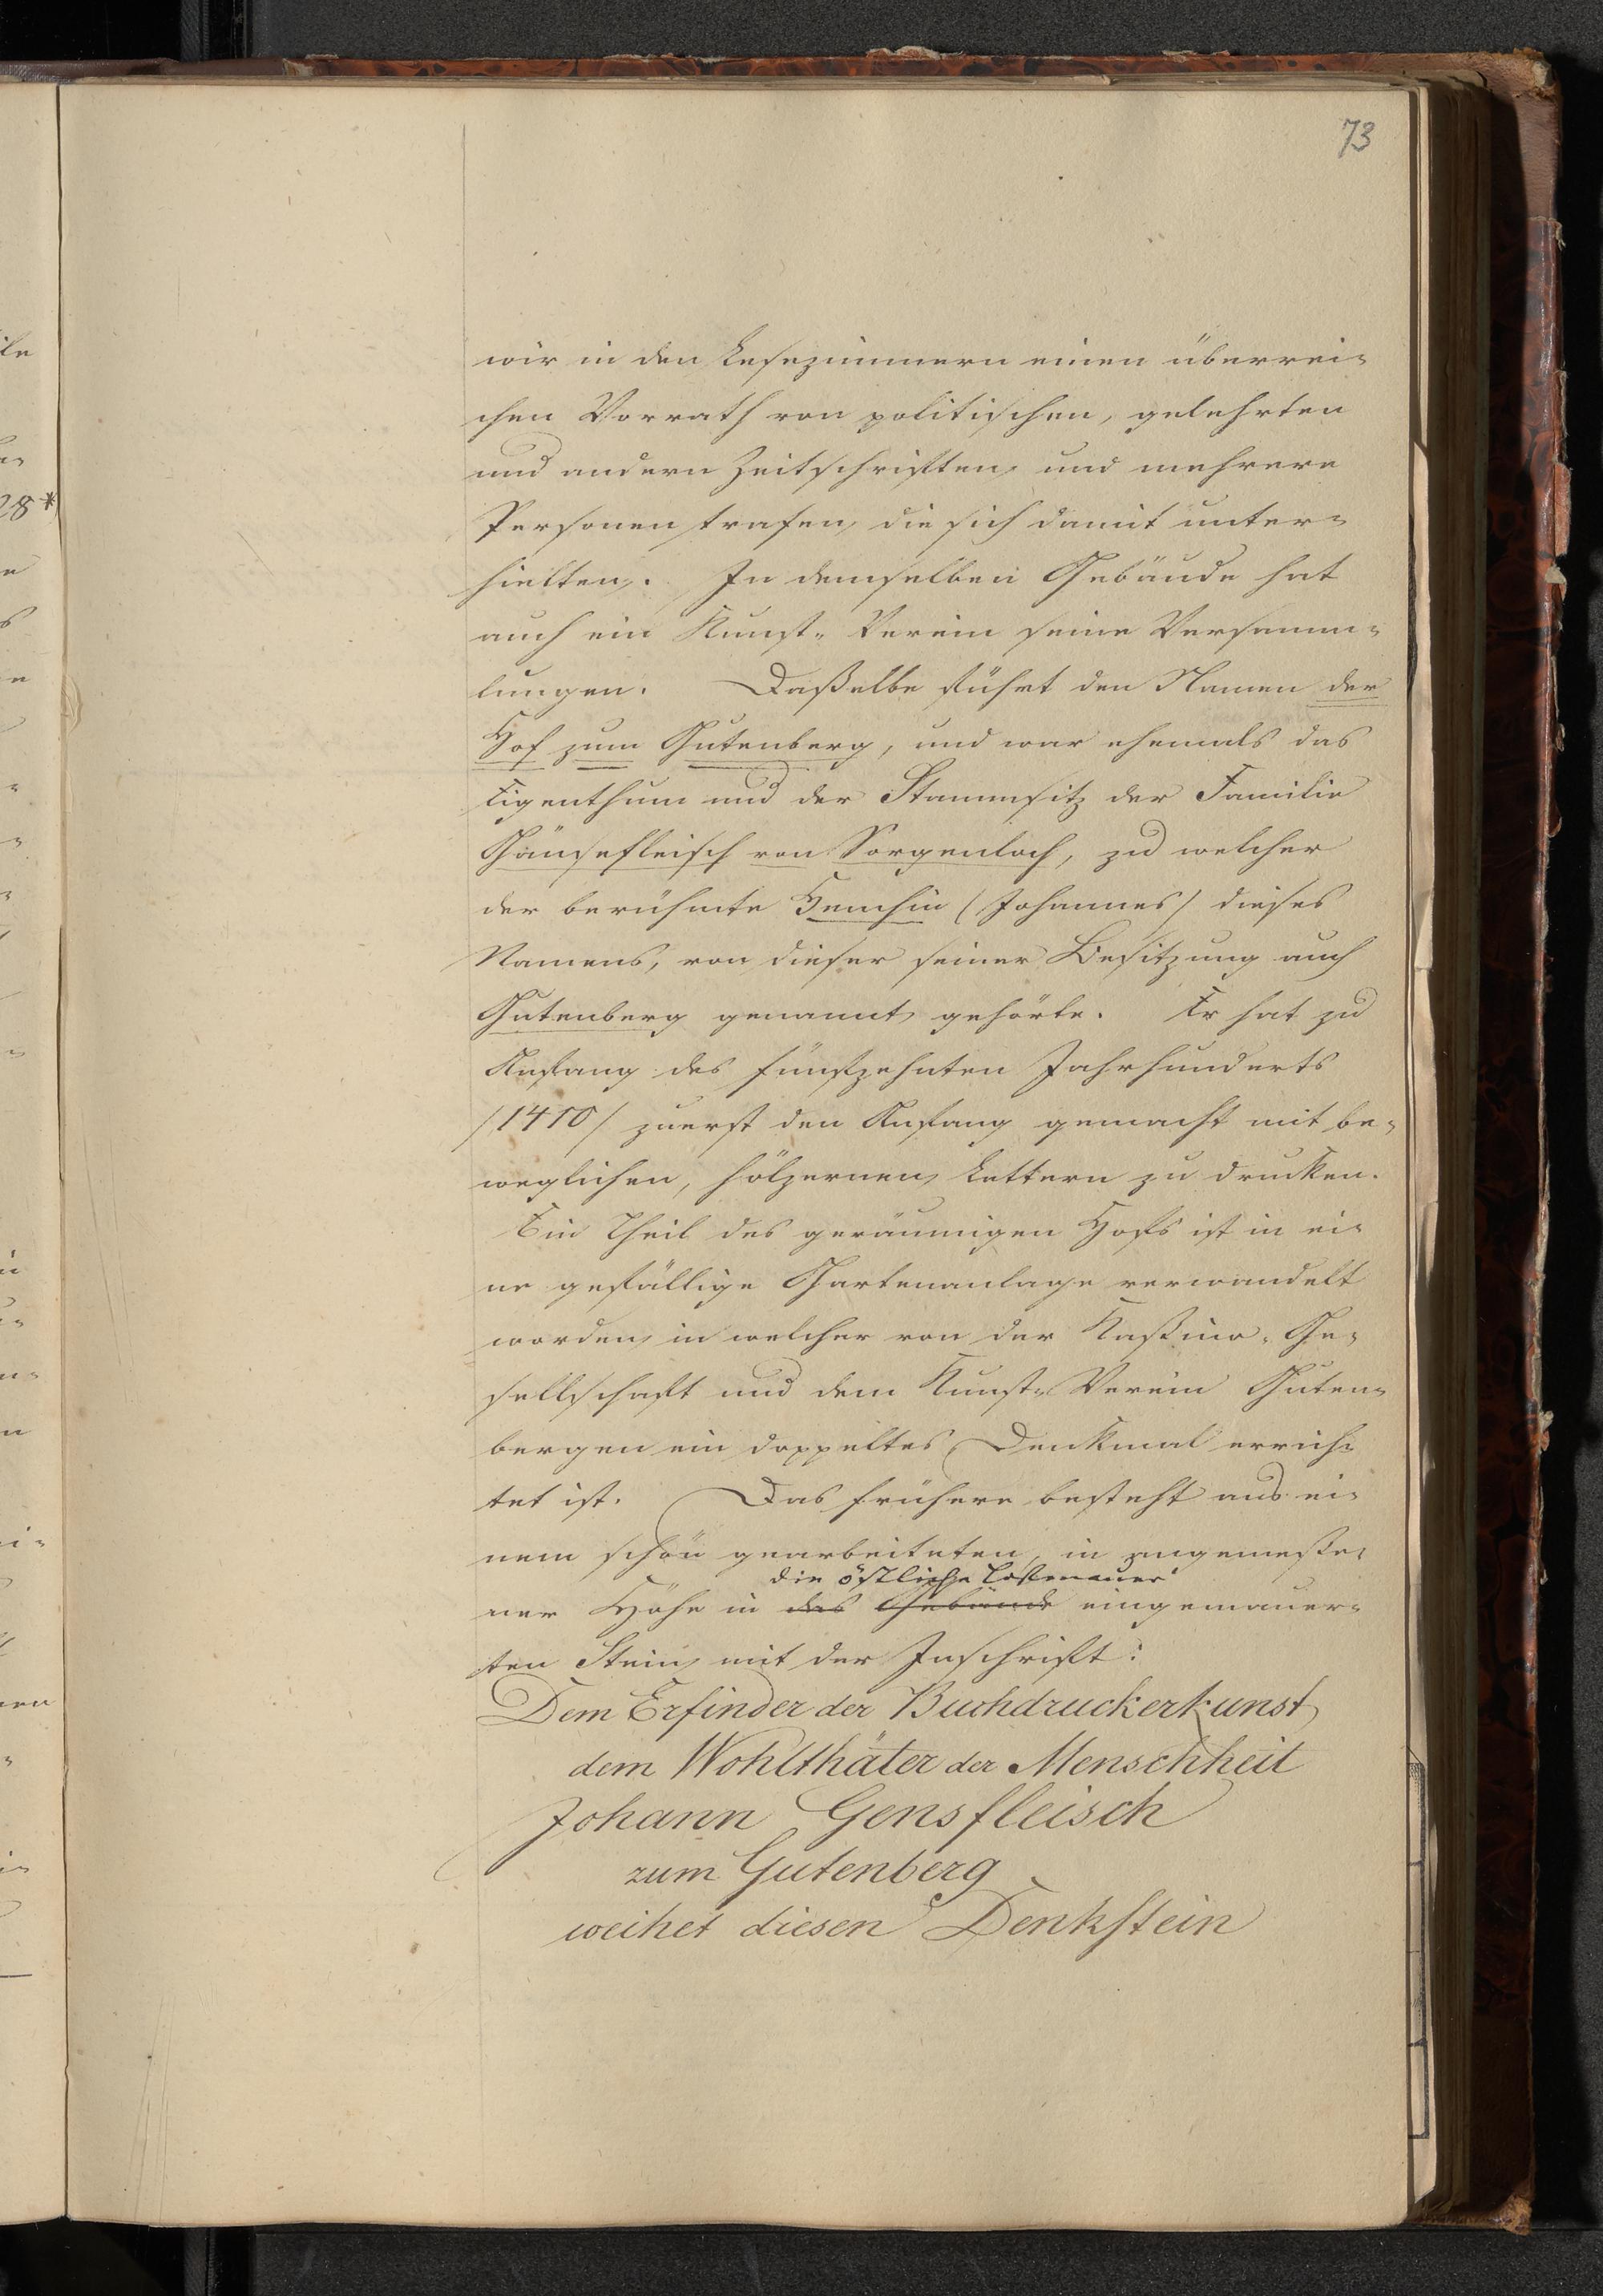 73
wir in den Lesezimmern einen überrei-
chen Vorrath von politischen, gelehrten
und andern Zeitschriften und mehrere
Personen trafen, die sich damit unter-
hielten. In demselben Gebäude hat
auch ein Kunst-Verein seine Versamm-
lungen. Daßelbe führt den Namen der
Hof zum Gutenberg, und war ehemals das
Eigenthum und der Stammsitz der Familie
Gänsefleisch von Sorgenloch, zu welcher
der berühmte Henchin (Johannes) dieses
Namens, von dieser seiner Besitzung auch
Gutenberg genannt, gehörte. Er hat zu
Anfang des fünfzehnten Jahrhunderts
(1410) zuerst den Anfang gemacht mit be-
weglichen, hölzernen Lettern zu drucken.
Ein Theil des geräumigen Hofs ist in ei-
ne gefällige Gartenanlage verwandelt
worden, in welcher von der Kaßino-Ge-
sellschaft und dem Kunst-Verein Guten-
bergen ein doppeltes Denkmal errich-
tet ist. Das frühere besteht aus ei-
nem schön gearbeiteten, in angemeße-
die östliche Hofmauer
ner Höhe in das Gebäude eingemauer-
ten Stein mit der Inschrift:
Dem Erfinder der Buchdruckerkunst
dem Wohlthäter der Menschheit
Johann Gensfleisch
zum Gutenberg
weihet diesen Denkstein